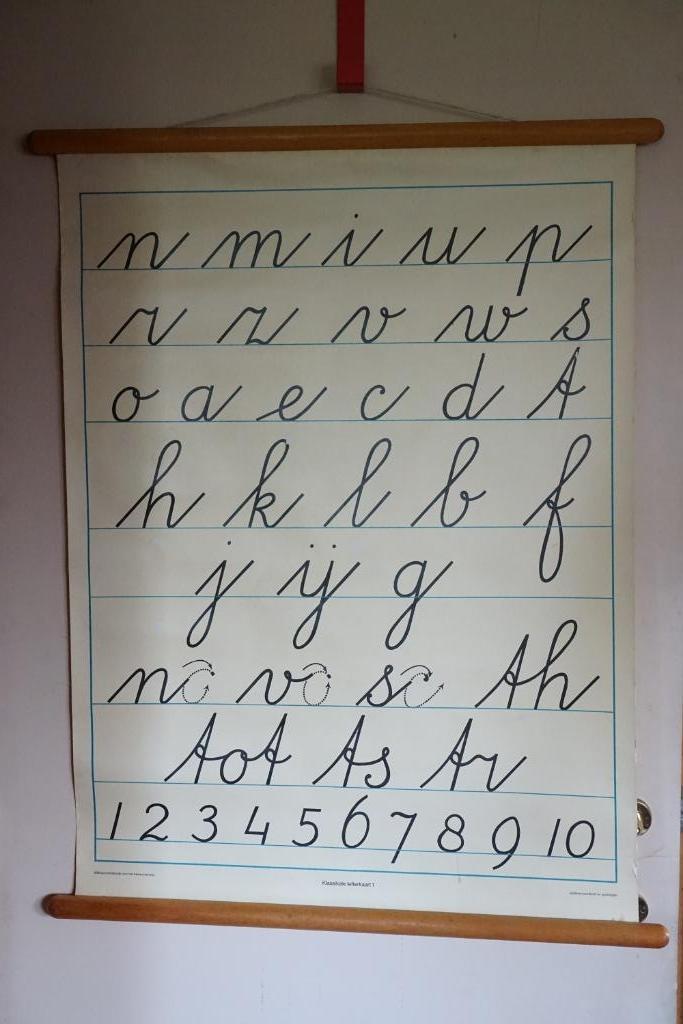 n m i u p
r z v w s
o a e c d t
h k l b f
j ij g
no vo sc th
tot ts tr
1 2 3 4 5 6 7 8 9 10
Klassikale letterkaart 1